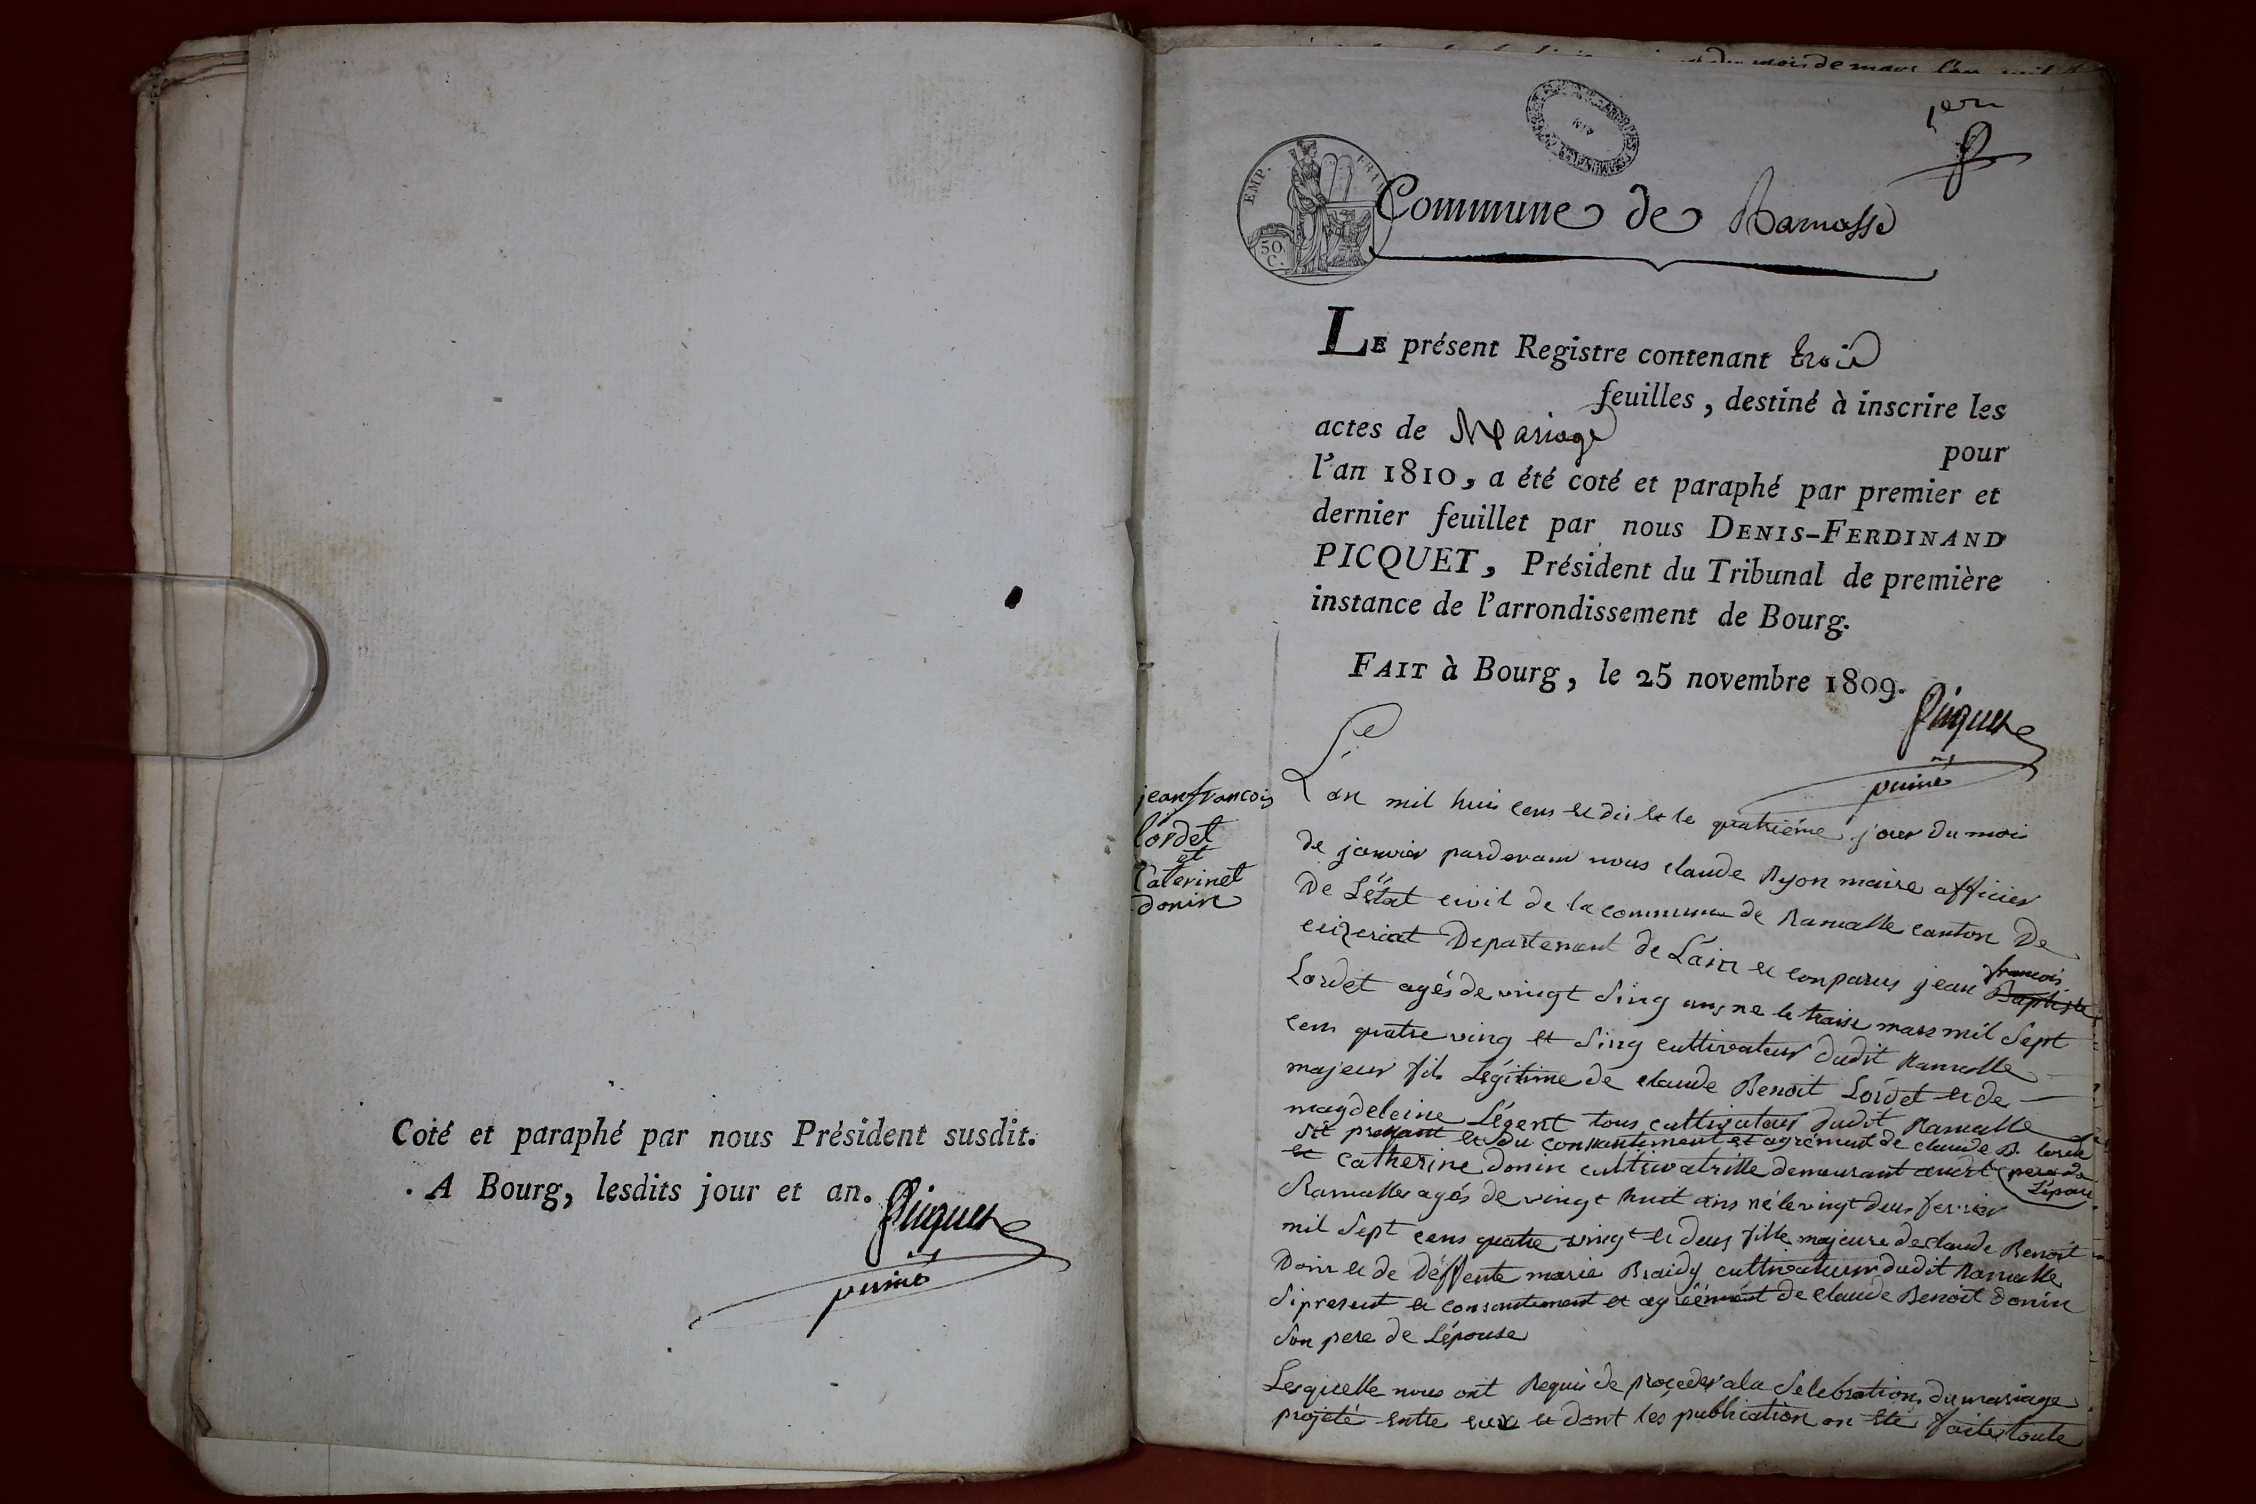 Coté et paraphé par nous Président susdit.
A Bourg, lesdits jour et an.
Picquet
mois de mars l'an mil
1er
EMP.
50
C.
Commune de Ramasse
LE présent Registre contenant trois
feuilles, destiné à inscrire les
actes de Mariage
pour
l'an 1810, a été coté et paraphé par premier et
dernier feuillet par nous DENIS-FERDINAND
PICQUET, Président du Tribunal de première
instance de l'arrondissement de Bourg.
FAIT à Bourg, le 25 novembre 1809.
Picquet
jean francois
lordet
et
Caterinet
donin
L'an mil huis cens et dis et le quatriéme jour du mois
de janvier pardevant nous claude Ryon maire officier
De L'état civil de la commune de Ramasse canton De
ceizeriat Departement de L'ain et conparus jean francois Baptiste
Lordet agés de vingt sing ans ne le traise mars mil sept
cens quatre ving et sing cultivateur dudit Ramasse
majeur fils Légitime de claude Benoit Lordet et de
magdeleine Légent tous cultivateur dudit Ramasse
sit present et du consantement et agrement de claude B. lordet
pere de
L'epoux
et catherine donin cultivatrisse demeurant audit
Ramasse agés de vingt huit ans né le vingt deus fevrier
mil sept cens quatre vingt et deus fille majeure de claude Benoit
Donin et de Déffente marie Braidy cultivateur dudit Ramasse
si present et consantement et agréément de claude Benoit donin
son pere de L'épouse
Lesquelle nous ont Requis de proçeder a la selebration du mariage
projeté entre eux et dont les publication on été faite toute